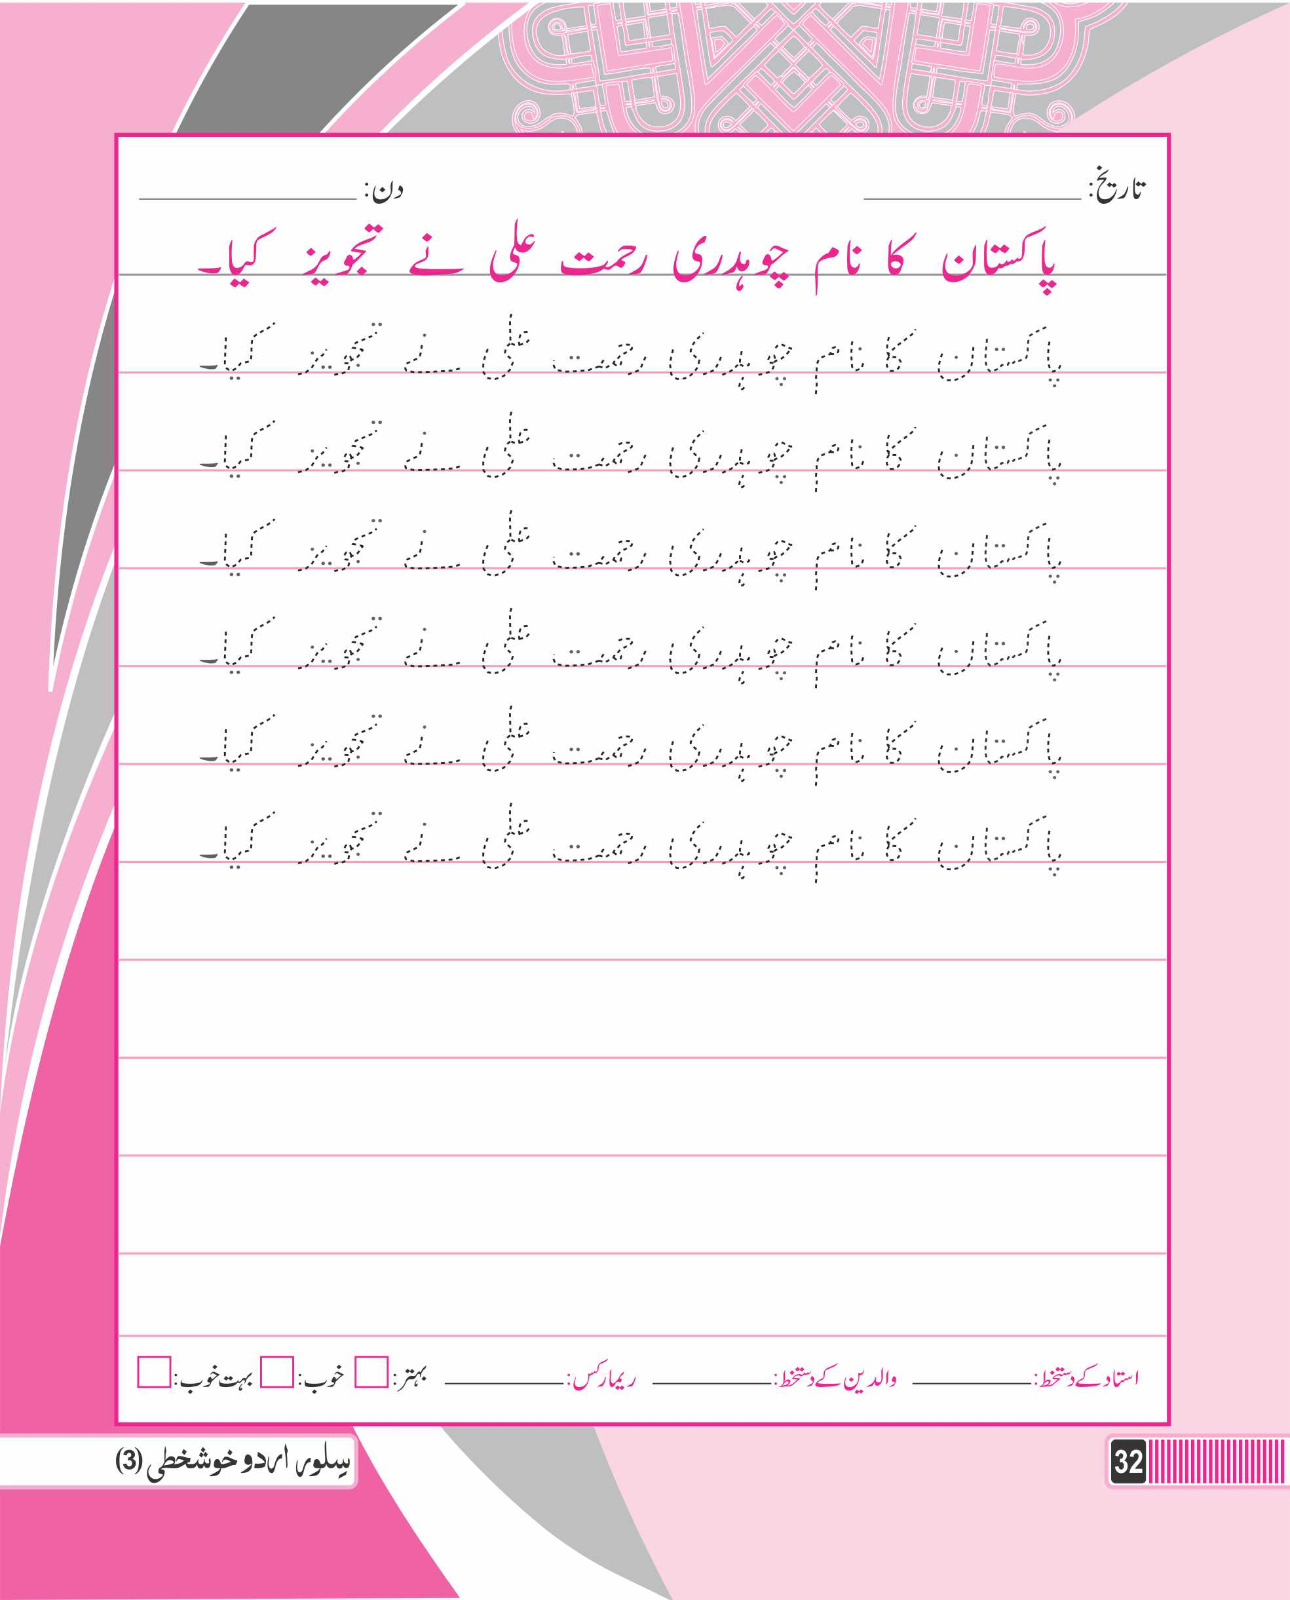 تاریخ: ____________ دن: ____________
پاکستان کا نام چوہدری رحمت علی نے تجویز کیا۔
پاکستان کا نام چوہدری رحمت علی نے تجویز کیا۔
پاکستان کا نام چوہدری رحمت علی نے تجویز کیا۔
پاکستان کا نام چوہدری رحمت علی نے تجویز کیا۔
پاکستان کا نام چوہدری رحمت علی نے تجویز کیا۔
پاکستان کا نام چوہدری رحمت علی نے تجویز کیا۔
پاکستان کا نام چوہدری رحمت علی نے تجویز کیا۔
استاد کے دستخط: ________ والدین کے دستخط: ________ ریمارکس: ________ بہتر: خوب: بہت خوب:
32
سِلور اردو خوشخطی (3)